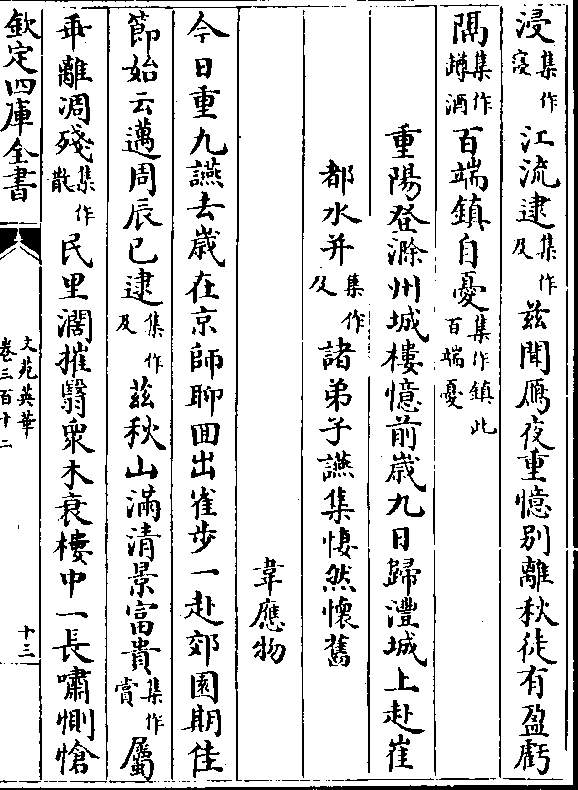 浸集作寖江流逮集作及兹聞鴈夜重憶别離秋徒有盈虧
隅集作罇酒百端鎮自憂集作鎮此百端憂
重陽登滁州城樓憶前歲九日歸灃城上赴崔
都水并集作及諸弟子讌集悽然懷舊
韋應物
今日重九讌去歲在京師聊囬出雀步一赴郊園期佳
節始云邁周辰已逮集作及兹秋山滿清景富貴集作賞屬
乖離凋殘集作散民里濶摧翳衆木衰樓中一長嘯惻愴
欽定四庫全書
文苑英華
卷三百十二
十三